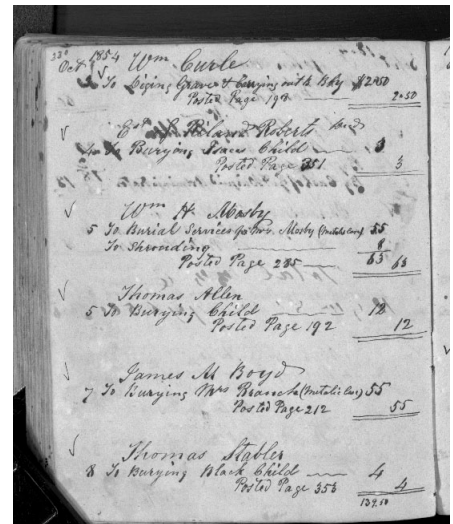 330
Oct 1854 Wm Curle
3 To Diging Grave & Carrying out B $2.50
Posted Page 198 2.50
Roberts
To Burying Child 3
Posted Page 351 3
Wm H. Mosby
5 To Burial Services for Mrs. Mosby 55
To Shrouding 8
Posted Page 285 63 63
Thomas Allen
5 To Burying Child 12
Posted Page 192 12
James M Boyd
7 To Burying Mrs Branch 55
Posted Page 212 55
Thomas Stabler
8 To Burying Black Child 4
Posted Page 353 4
139.50